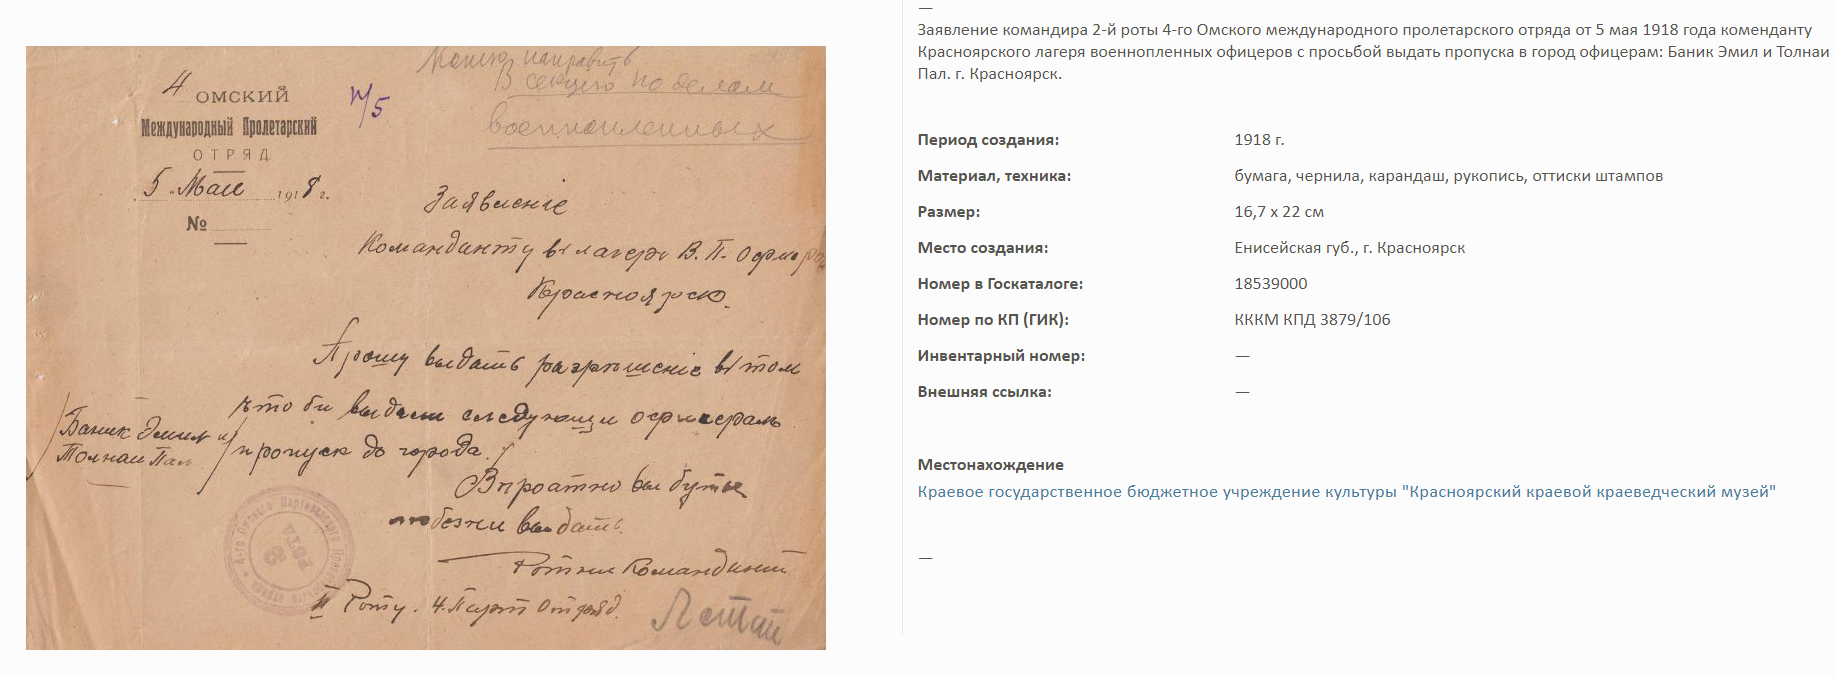 4
ОМСКИЙ
Международный Пролетарский
ОТРЯД
5 Маи 1918 г.
№
В секцию по делам
военнопленных
Заявленіе
Командиту въ лагерь В. П.
Красноярск.
Прошу выдать разрѣшеніе въ том
что би выдали следующи офицерам
пропуск до города.
Баник Эмил и
Толнаи Пал
выдать.
Командант
II Роту. 4. Парт Отряд.
РОТА
—
Заявление командира 2-й роты 4-го Омского международного пролетарского отряда от 5 мая 1918 года коменданту
Красноярского лагеря военнопленных офицеров с просьбой выдать пропуска в город офицерам: Баник Эмил и Толнаи
Пал. г. Красноярск.
Период создания: 1918 г.
Материал, техника: бумага, чернила, карандаш, рукопись, оттиски штампов
Размер: 16,7 х 22 см
Место создания: Енисейская губ., г. Красноярск
Номер в Госкаталоге: 18539000
Номер по КП (ГИК): КККМ КПД 3879/106
Инвентарный номер: —
Внешняя ссылка: —
Местонахождение
Краевое государственное бюджетное учреждение культуры "Красноярский краевой краеведческий музей"
—